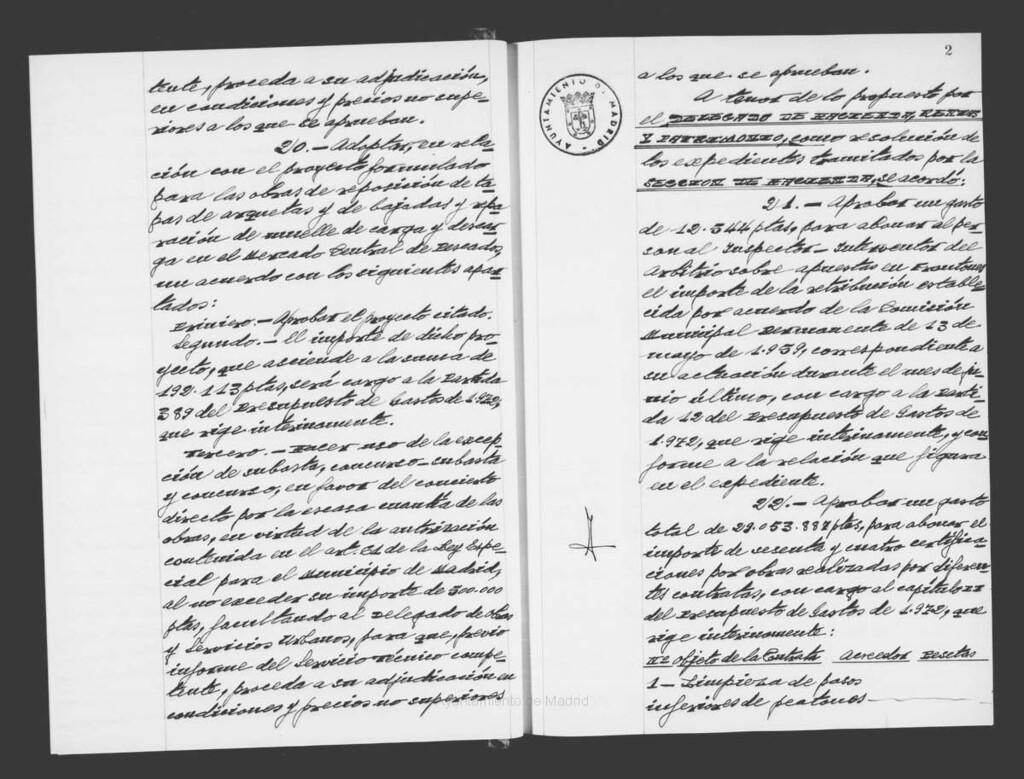 tente, proceda a su adjudicación,
en condiciones y precios no supe-
riores a los que se aprueban.
20.- Adoptar, en rela-
ción con el proyecto formulado
para las obras de reposición de ta-
pas de arquetas y de bajadas y repa-
ración de muelle de carga y descar-
ga en el Mercado Central de Pescados,
un acuerdo con los siguientes apar-
tados:
Primero.- Aprobar el proyecto citado.
Segundo.- El importe de dicho pro-
yecto, que asciende a la suma de
192.113 ptas, será cargo a la Partida
389 del Presupuesto de Gastos de 1.972,
que rige interinamente.
Tercero.- Hacer uso de la excep-
ción de subasta, concurso-subasta
y concurso, en favor del concierto
directo por la escasa cuantía de las
obras, en virtud de la autorización
contenida en el art. de la Ley Espe-
cial para el Municipio de Madrid,
al no exceder su importe de 300.000
ptas, facultando al Delegado de Obras
y Servicios Urbanos, para que, previo
informe del Servicio Técnico compe-
tente, proceda a su adjudicación en
condiciones y precios no superiores
AYUNTAMIENTO DE MADRID
2
a los que se aprueban.
A tenor de lo propuesto por
el DELEGADO DE HACIENDA, RENTAS
Y PATRIMONIO, como resolución de
los expedientes tramitados por la
SECCION DE HACIENDA, se acordó:
21.- Aprobar un gasto
de 12.344 ptas, para abonar al per-
sonal Inspector-Interventor del
Arbitrio sobre apuestas en Frontones
el importe de la retribución estable-
cida por acuerdo de la Comisión
Municipal Permanente de 13 de
mayo de 1.939, correspondiente a
su actuación durante el mes de ju-
nio último, con cargo a la Parti-
da 12 del Presupuesto de Gastos de
1.972, que rige interinamente, y con-
forme a la relación que figura
en el expediente.
22.- Aprobar un gasto
total de 29.053.887 ptas, para abonar el
importe de sesenta y cuatro certifica-
ciones por obras realizadas por diferen-
tes contratas, con cargo al capítulo II
del Presupuesto de Gastos de 1.972, que
rige interinamente:
Nº Objeto de la Contrata Acreedor Pesetas
1 - Limpieza de pasos
inferiores de peatones
Ayuntamiento de Madrid